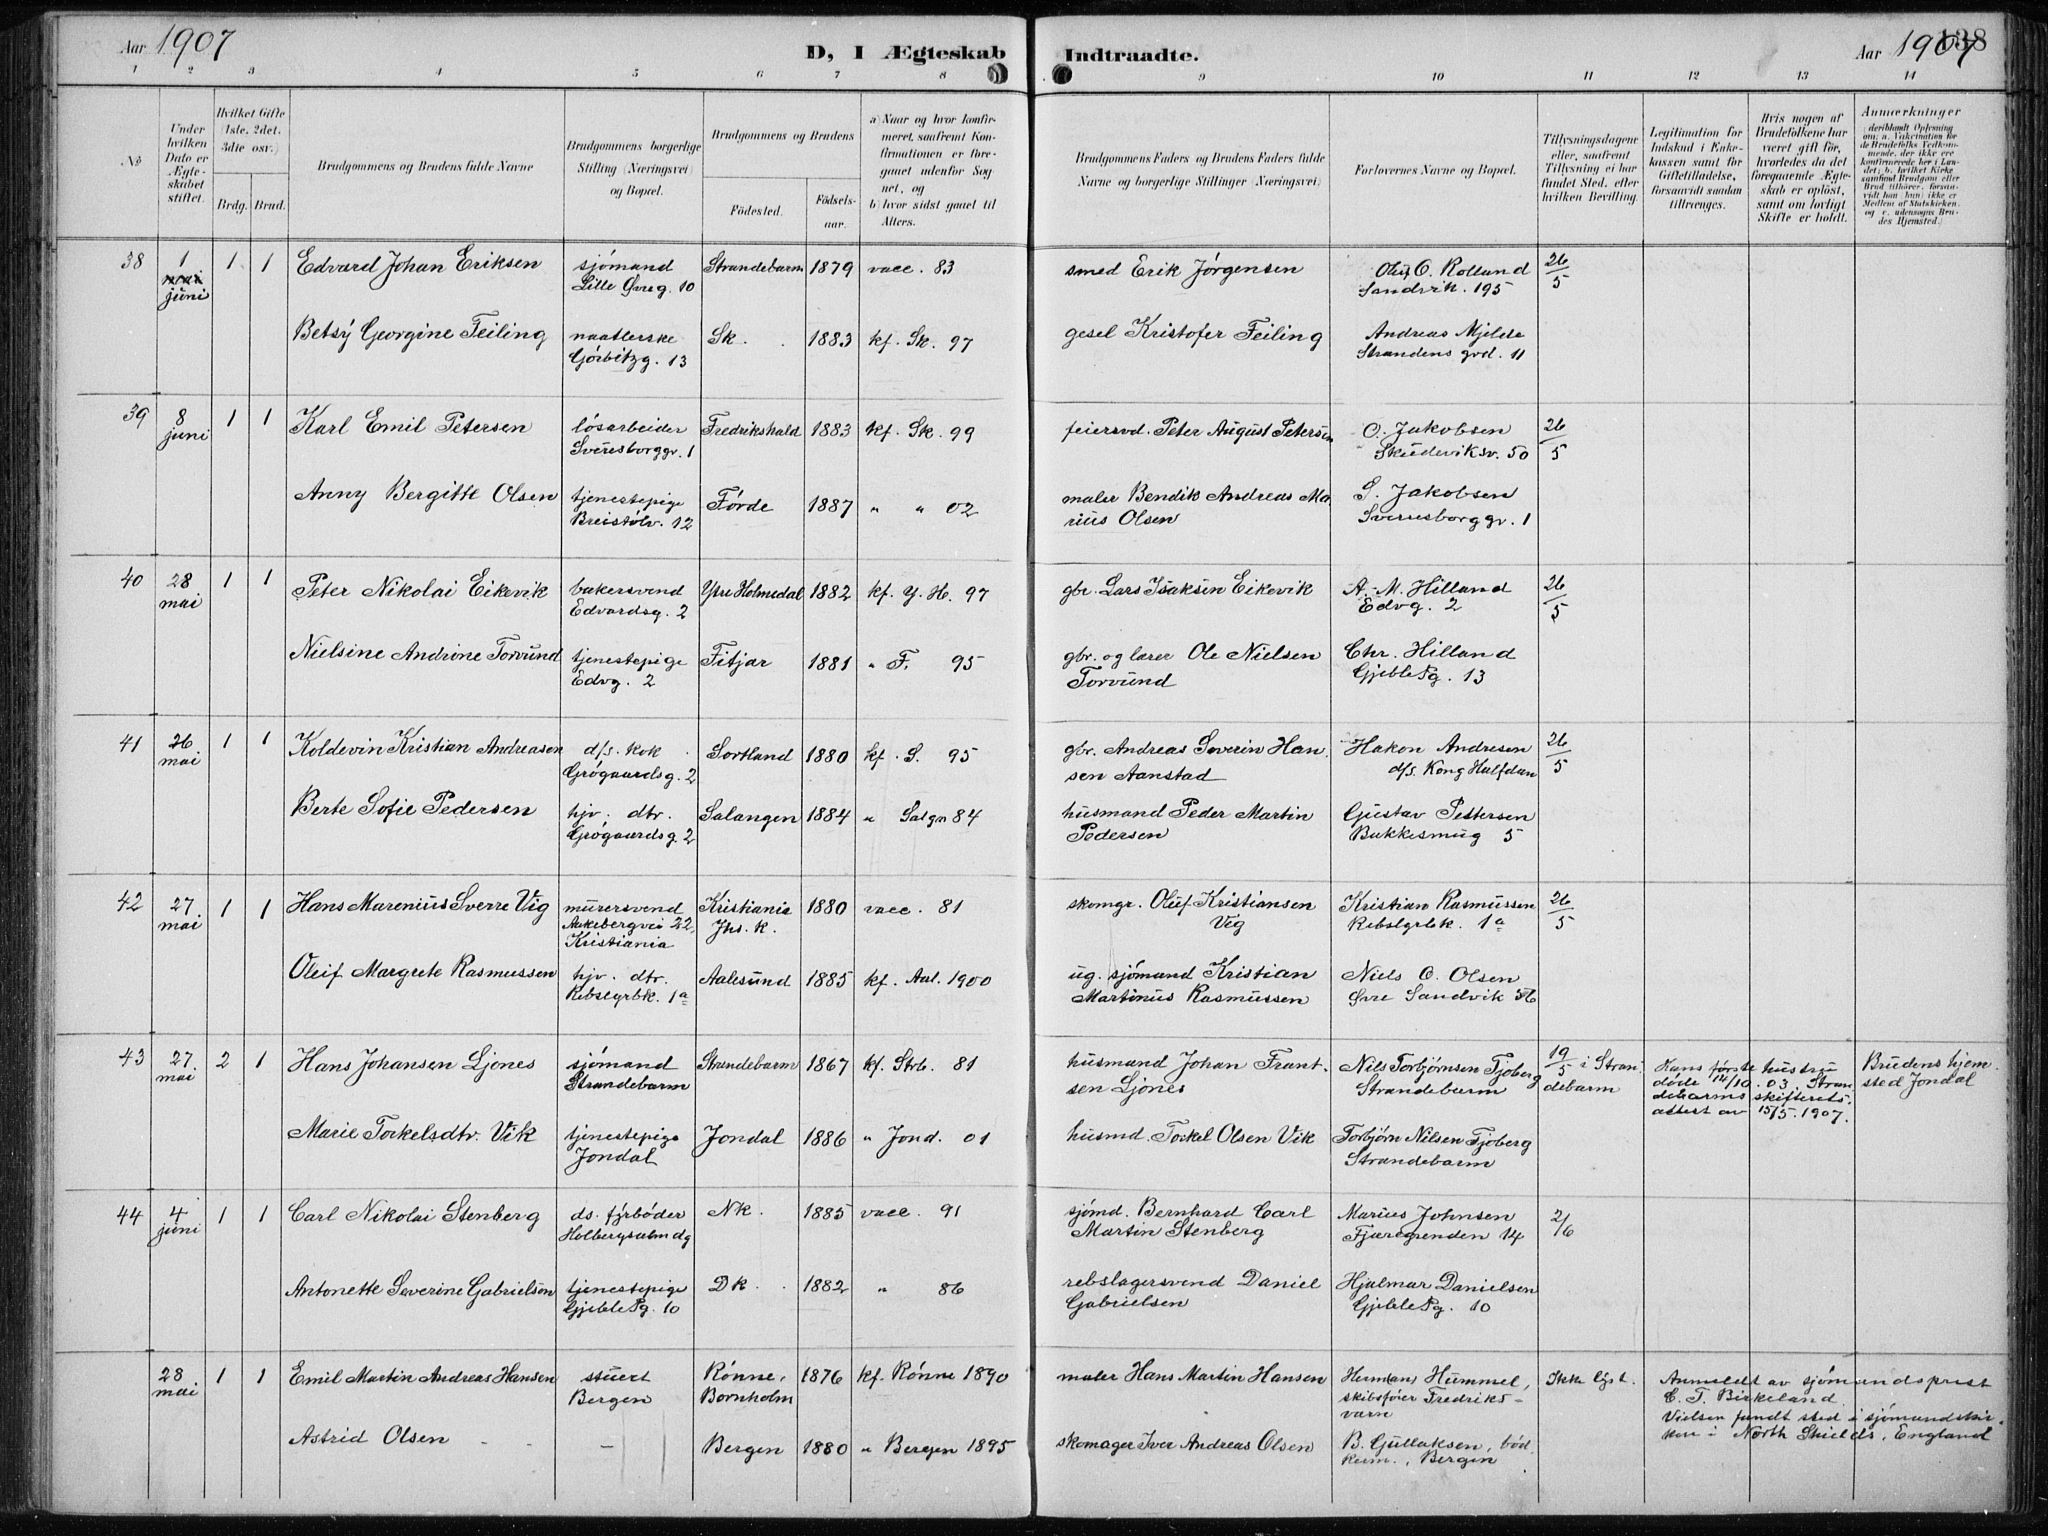 Aar 1907
D, I Ægteskab Indtraadte.
Aar 1907
138
1 2 3 4 5 6 7 8 9 10 11 12 13 14
No
Under hvilken Dato er Ægteskabet stiftet.
Hvilket Gifte (1ste, 2det, 3dte osv.)
Brdg. Brud.
Brudgommens og Brudens fulde Navne
Brudgommens borgerlige Stilling (Næringsvei) og Bopæl.
Brudgommens og Brudens
Födested.
Födselsaar.
a) Naar og hvor konfirmeret, saafremt Konfirmationen er foregaaet udenfor Sognet, og
b) hvor sidst gaaet til Alters.
Brudgommens Faders og Brudens Faders fulde Navne og borgerlige Stillinger (Næringsvei)
Forlovernes Navne og Bopæl.
Tillysningsdagene eller, saafremt Tillysning ei har fundet Sted, efter hvilken Bevilling.
Legitimation for Indskud i Enkekassen samt for Giftetilladelse, forsaavidt saadan tiltrænges.
Hvis nogen af Brudefolkene har været gift før, hvorledes da det foregaaende Ægteskab er oplöst, samt om lovligt Skifte er holdt.
Anmærkninger
(deriblandt Oplysning om: a. Vakcination for de Brudefolks Vedkommende, der ikke ere konfirmerede her i Landet; b. hvilket Kirkesamfund Brudgom eller Brud tilhörer, forsavidt han (hun) ikke er Medlem af Statskirken, og c. udensogns Brudes Hjemsted.)
38 1 mai juni 1 1 Edvard Johan Eriksen sjömand Strandebarm 1879 vacc. 83 smed Erik Jørgensen Oluf O. Rolland 26/5
Lille Øvreg. 10 Sandvik. 195
Betsy Georgine Feiling naatlerske Sk. 1883 kf. Sk. 97 gesel Kristofer Feiling Andreas Mjelde
Görbitzg. 13 Strandens grd. 11
39 8 juni 1 1 Karl Emil Petersen lösarbeider Fredrikshald 1883 kf. Sk. 99 feiersvd. Peter August Petersen O. Jakobsen 26/5
Sverresborggr. 1 Skudeviksv. 50
Anny Bergitte Olsen tjenestepige Förde 1887 " " 02 maler Bendik Andreas Ma S. Jakobsen
Breistölv. 12 rius Olsen Sverresborggr. 1
40 28 mai 1 1 Peter Nikolai Eikevik bakersvend Ytre Holmedal 1882 kf. Y. H. 97 gbr. Lars Isaksen Eikevik A. M. Hilland 26/5
Edvardsg. 2 Edvg. 2
Nielsine Andrine Torvund tjenestepige Fitjar 1881 " F. 95 gbr. og lærer Ole Nielsen Chr. Hilland
Edvg. 2 Torvund Gjeble Pg. 13
41 26 mai 1 1 Koldevin Kristian Andreasen d/s. kok Sortland 1880 kf. S. 95 gbr. Andreas Severin Han Hakon Andresen 26/5
Grógaardsg. 2 sen Aanstad d/s. Kong Halfdan
Berte Sofie Pedersen hjv. dtr. Salangen 1884 " Salgn 84 husmand Peder Martin Gustav Pettersen
Grógaardsg. 2 Pedersen Bukkesmug 5
42 27 mai 1 1 Hans Marenius Sverre Vig murersvend Kristiania 1880 vacc. 81 skomgr. Oluf Kristiansen Kristian Rasmussen 26/5
Akebergvei 22, Jhs. K. Vig Rebslgrbk. 1a
Kristiania
Oleif Margrete Rasmussen hjv. dtr. Aalesund 1885 kf. Aal. 1900 ug. sjömand Kristian Niels O. Olsen
Rebslgrbk. 1a Martinus Rasmussen Øvre Sandvik 56
43 27 mai 2 1 Hans Johansen Ljones sjömand Strandebarm 1867 kf. Strb. 81 husmand Johan Frant Nils Torbjørnsen Fjoberg 19/5 i Stran Hans første hustru Brudens hjem
Strandebarm sen Ljones Strandebarm debarm døde 14/10. 03. Stran sted Jondal
debarms skifterets
attest av 15/5 1907.
Marie Torkelsdtr. Vik tjenestepige Jondal 1886 " Jond. 01 husmd. Torkel Olsen Vik Torbjørn Nilsen Fjoberg
Jondal Strandebarm
44 4 juni 1 1 Carl Nikolai Stenberg ds. fyrböder Nk. 1885 vacc. 91 sjömd. Bernhard Carl Marius Johnsen 2/6
Holbergsalmdg Martin Stenberg Fjæregrenden 14
Antonette Severine Gabrielsen tjenestepige Dk. 1882 " 86 rebslagersvend Daniel Hjalmar Danielsen
Gjeble Pg. 10 Gabrielsen Gjeble Pg. 10
28 mai 1 1 Emil Martin Andreas Hansen stuert Rónne, 1876 kf. Rónne 1890 maler Hans Martin Hansen Herm(an) Hummel, Ikke lyst. Anmeldt av sjömandsprest
Bergen Bornholm skibsfører Fredriks- C. T. Birkeland.
værn Vielsen fandt sted i sjömandskir
Astrid Olsen - Bergen 1880 " Bergen 1895 skomager Iver Andreas Olsen B. Gullaksen, bød ken i North Shields, England
kerm., Bergen